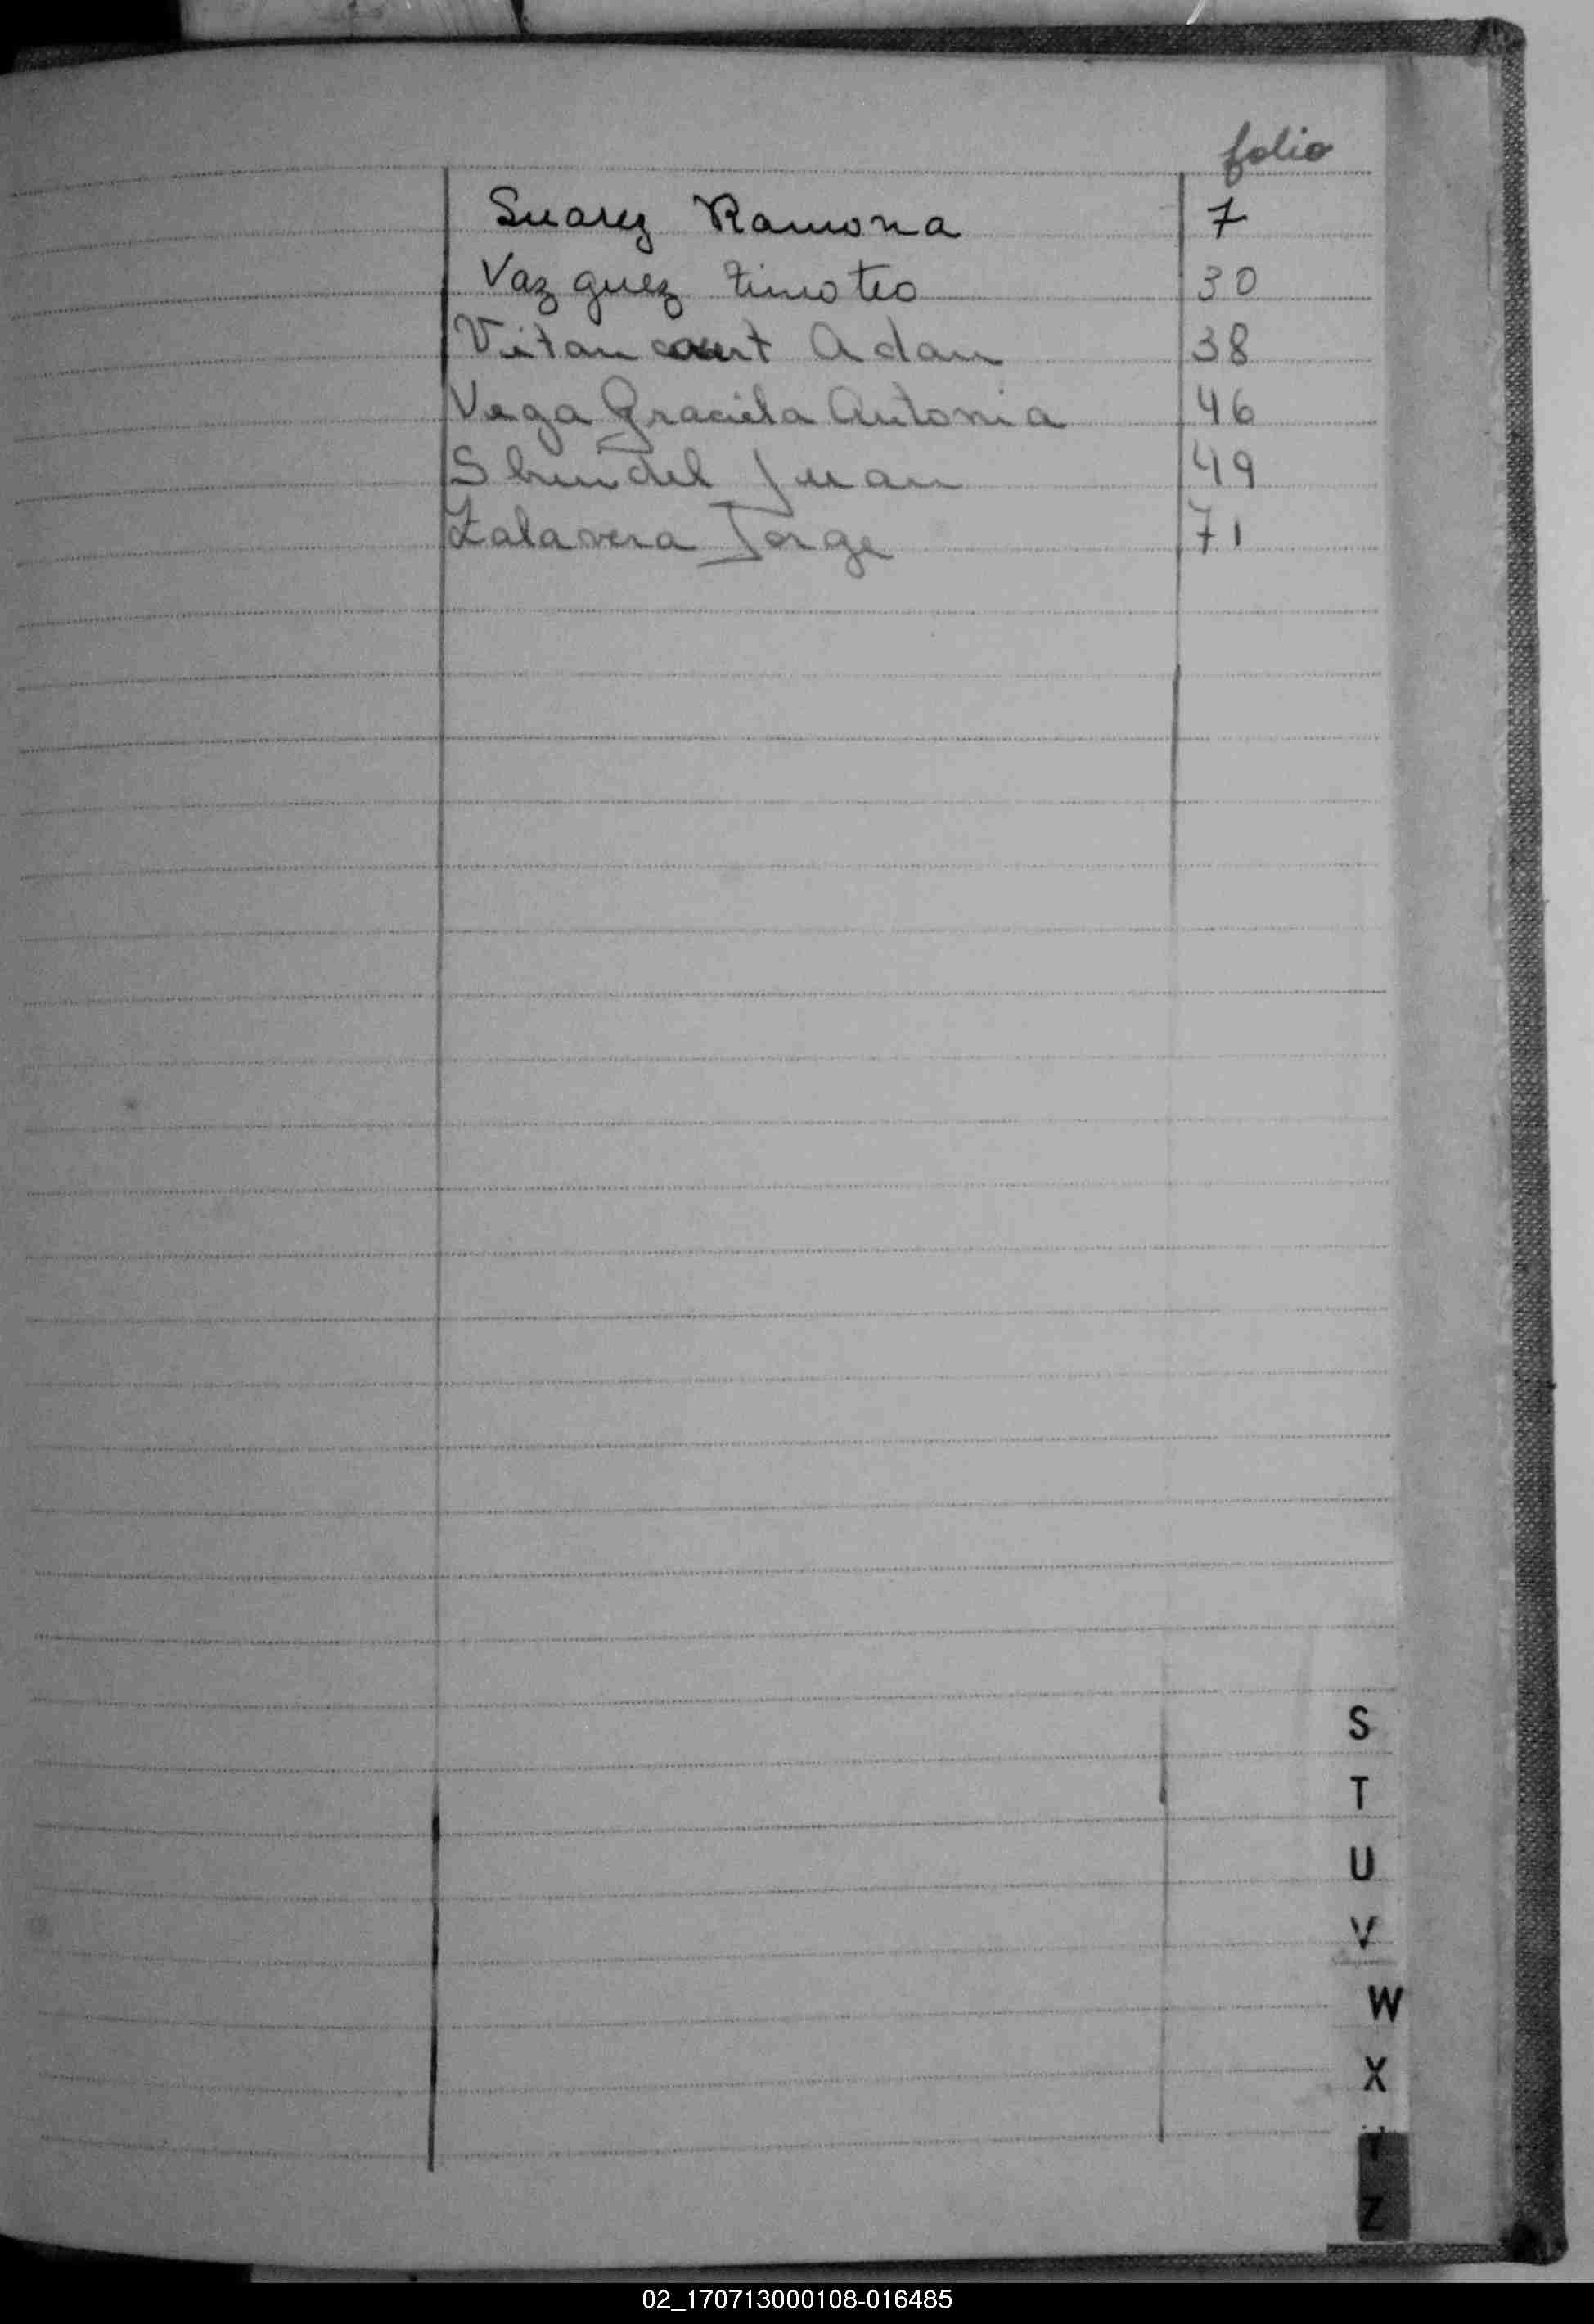 folio
Suarez Ramona 7
Vazquez timoteo 30
Vitancourt Adan 38
Vega Graciela Antonia 46
Juan 49
Zalavera Jorge 71
S
T
U
V
W
X
Y
Z
02_170713000108-016485